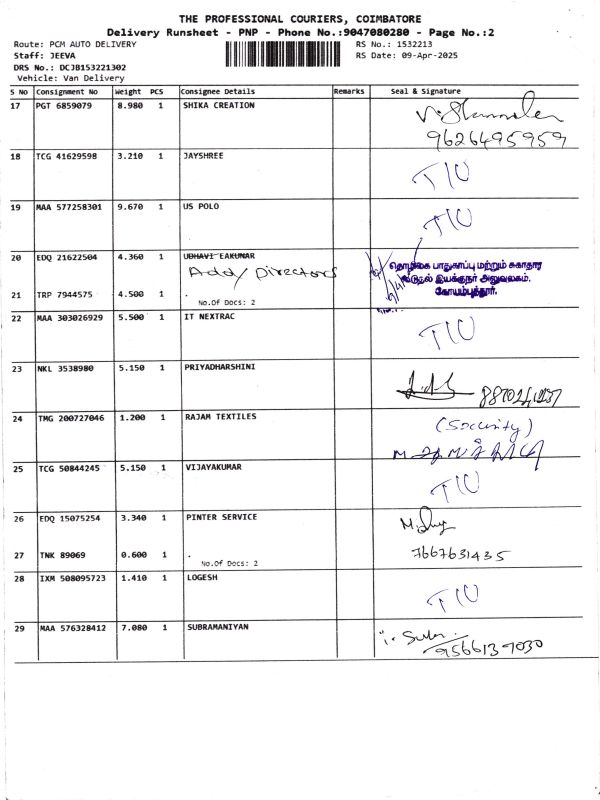 THE PROFESSIONAL COURIERS, COIMBATORE
Delivery Runsheet - PNP - Phone No.:9047080280 - Page No.:2
Route: PCM AUTO DELIVERY
RS No.: 1532213
Staff: JEEVA
RS Date: 09-Apr-2025
DRS No.: DCJB153221302
Vehicle: Van Delivery
S No Consignment No Weight PCS Consignee Details Remarks Seal & Signature
17 PGT 6859079 8.980 1 SHIKA CREATION
9626495959
18 TCG 41629598 3.210 1 JAYSHREE
TIU
19 MAA 577258301 9.670 1 US POLO
TIU
20 EDQ 21622504 4.360 1 UDHAVI EAKUNAR
Add/Directors
தொழிலக பாதுகாப்பு மற்றும் சுகாதார
இயக்குநர் அலுவலகம்,
கோயம்புத்தூர்.
21 TRP 7944575 4.500 1 .
No.Of Docs: 2
22 MAA 303026929 5.500 1 IT NEXTRAC
TIU
23 NKL 3538980 5.150 1 PRIYADHARSHINI
24 TMG 200727046 1.200 1 RAJAM TEXTILES
(Security)
25 TCG 50844245 5.150 1 VIJAYAKUMAR
TIU
26 EDQ 15075254 3.340 1 PINTER SERVICE
27 TNK 89069 0.600 1 .
7667631435
No.Of Docs: 2
28 IXM 508095723 1.410 1 LOGESH
TIU
29 MAA 576328412 7.080 1 SUBRAMANIYAN
9566137030